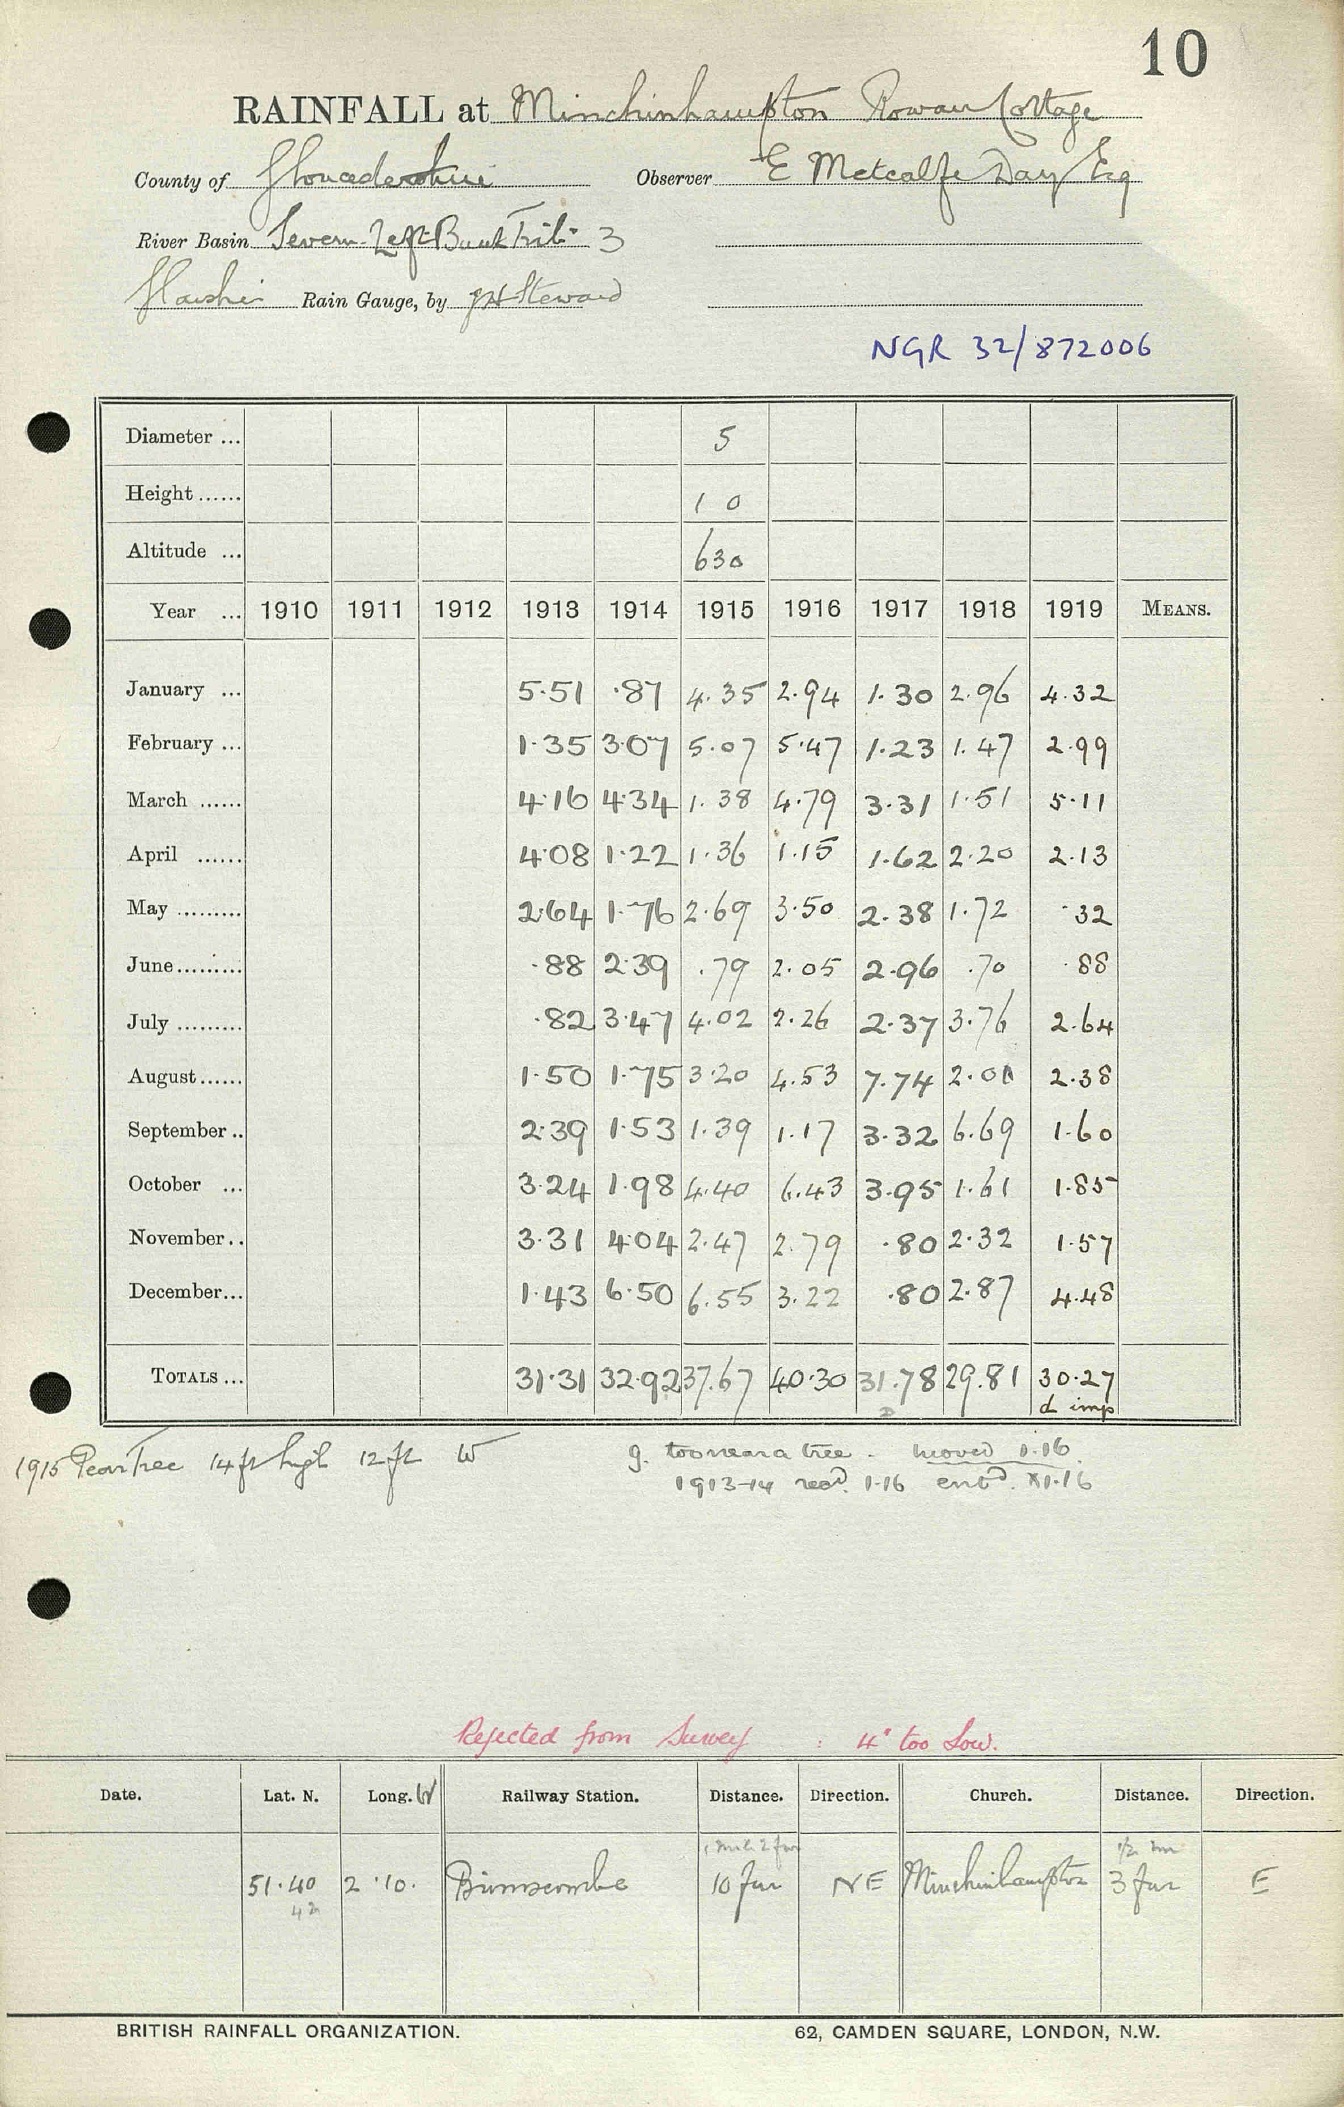 10
RAINFALL at Minchinhampton Rowan Cottage
County of Gloucestershire Observer E Metcalfe Day Esq
River Basin Severn-Left Bank Trib: 3
Rain Gauge, by JH Steward
NGR 32/872006
Diameter ... 5
Height ...... 1 0
Altitude ... 630
Year ... 1910 1911 1912 1913 1914 1915 1916 1917 1918 1919 MEANS.
January ... 5.51 .87 4.35 2.94 1.30 2.96 4.32
February ... 1.35 3.07 5.07 5.47 1.23 1.47 2.99
March ...... 4.16 4.34 1.38 4.79 3.31 1.51 5.11
April ...... 4.08 1.22 1.36 1.15 1.62 2.20 2.13
May ......... 2.64 1.76 2.69 3.50 2.38 1.72 .32
June ......... .88 2.39 .79 2.05 2.96 .70 .88
July ......... .82 3.47 4.02 2.26 2.37 3.76 2.64
August ...... 1.50 1.75 3.20 4.53 7.74 2.00 2.38
September .. 2.39 1.53 1.39 1.17 3.32 6.69 1.60
October ... 3.24 1.98 4.40 6.43 3.95 1.61 1.85
November .. 3.31 4.04 2.47 2.79 .80 2.32 1.57
December ... 1.43 6.50 6.55 3.22 .80 2.87 4.48
TOTALS ... 31.31 32.92 37.67 40.30 31.78 29.81 30.27
d imp
1915 Pear Tree 14 ft high 12 ft W
g. too near a tree. moved 1.16.
1913-14 recd. 1.16 entd. 1.16
Rejected from Survey : 4" too Low.
Date. Lat. N. Long. W Railway Station. Distance. Direction. Church. Distance. Direction.
1 mile 2 fur 1/2 m
51.40 2.10. Brimscombe 10 fur NE Minchinhampton 3 fur E
42
BRITISH RAINFALL ORGANIZATION. 62, CAMDEN SQUARE, LONDON, N.W.